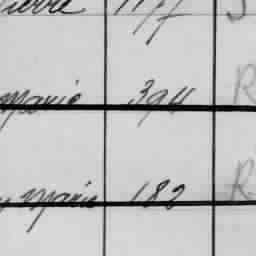 Pierre 1177 J
marie 394 R
marie 182 R